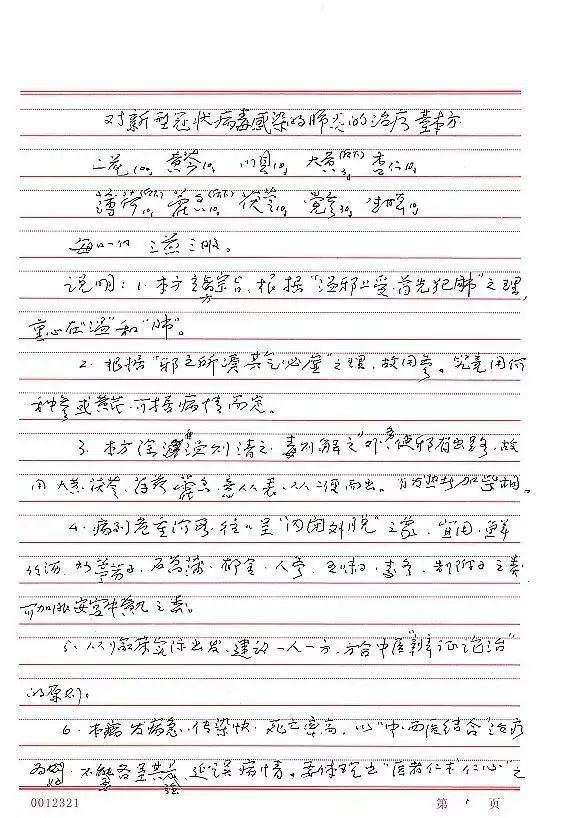 对新型冠状病毒感染的肺炎的治疗基本方
二花10g 黄芩10g 川贝10g 大黄(后下)3g 杏仁10g
薄荷(后下)10g 藿香(后下)10g 茯苓10g 党参30g 10g
每日一付 三煎三服。
说明：1. 本方立方宗旨，根据“温邪上受，首先犯肺”之理，
重心在“温”和“肺”。
2. 根据“邪之所凑其气必虚”之理，故用参。究竟用何
种参或黄芪，可据病情而定。
3. 本方除温则清之，毒则解之外，使邪有出路，故
用大黄、茯苓、薄荷、藿香，意从表、从二便而出。加柴胡。
4. 病到危重阶段，往往呈“内闭外脱”之象，宜用鲜
竹沥、石菖蒲、郁金、人参、五味子、麦冬、制附子之类
可加服安宫牛黄丸之类。
5. 从临床实际出发，建议一人一方，方合中医“辨证论治”
的原则。
6. 本病发病急，传染快，死亡率高，以“中西医结合”治疗
为好，不能各呈其，延误病情。要体现出“医者仁术仁心”之
0012321 第 1 页